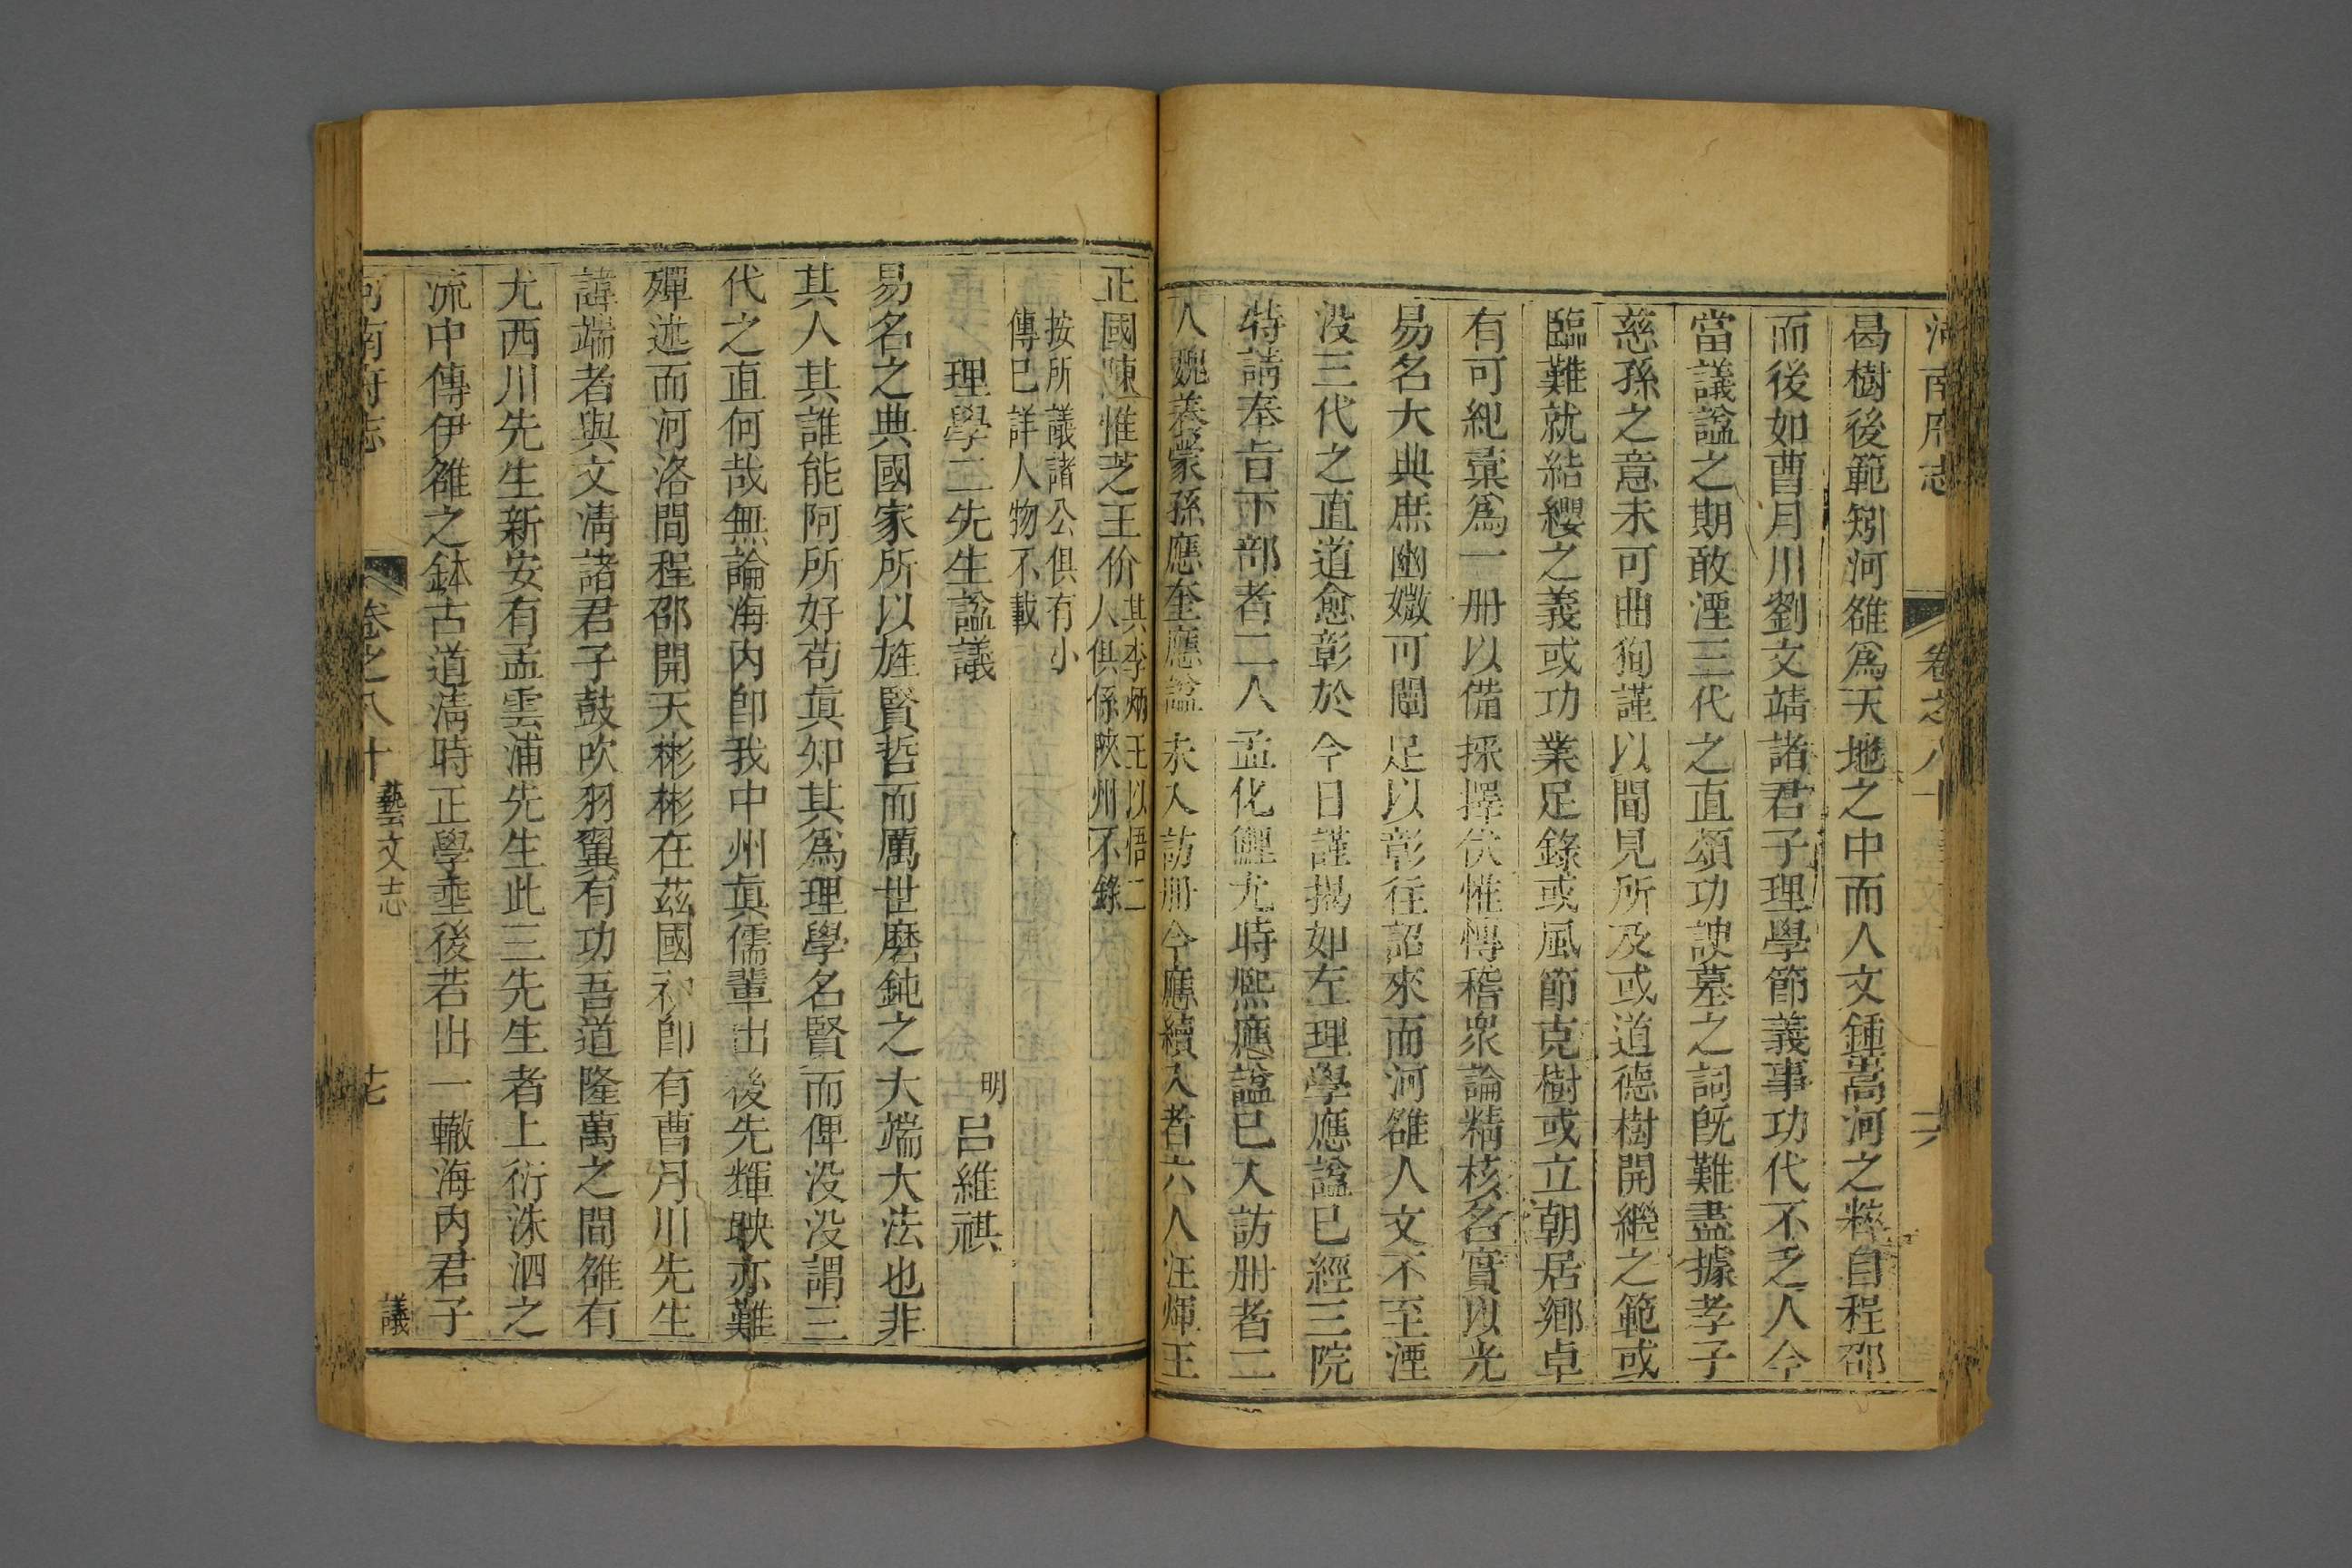 河南府志 卷之八十 六
曷樹後範矧河雒爲天地之中而人文鍾嵩河之粹自程邵
而後如曹月川劉文靖諸君子理學節義事功代不乏人今
當議諡之期敢湮三代之直頌功諛墓之詞旣難盡據孝子
慈孫之意未可曲狥謹以聞見所及或道德樹開繼之範或
臨難就結纓之義或功業足錄或風節克樹或立朝居鄉卓
有可紀彙爲一册以備採擇伏惟慱稽衆論精核名實以光
易名大典庶幽媺可闡足以彰往詔來而河雒人文不至湮
没三代之直道愈彰於今日謹揭如左理學應諡已經三院
特請奉旨下部者二人孟化鯉尤時熙應諡已入訪册者二
人魏養蒙孫應奎應諡未入訪册今應續入者六人汪煇王
正國陳惟芝王价其李炳王以悟二
人俱係陝州不錄
按所議諸公俱有小
傳已詳人物不載
理學二先生諡議 明 呂維祺
易名之典國家所以旌賢哲而厲世磨鈍之大端大法也非
其人其誰能阿所好苟眞知其爲理學名賢而俾没没謂三
代之直何哉無論海内卽我中州眞儒輩出後先輝映亦難
殫述而河洛間程邵開天彬彬在茲國初卽有曹月川先生
諱端者與文淸諸君子鼓吹羽翼有功吾道隆萬之間雒有
尤西川先生新安有孟雲浦先生此三先生者上衍洙泗之
流中傳伊雒之鉢古道淸時正學垂後若出一轍海内君子
河南府志 卷之八十 藝文志 議